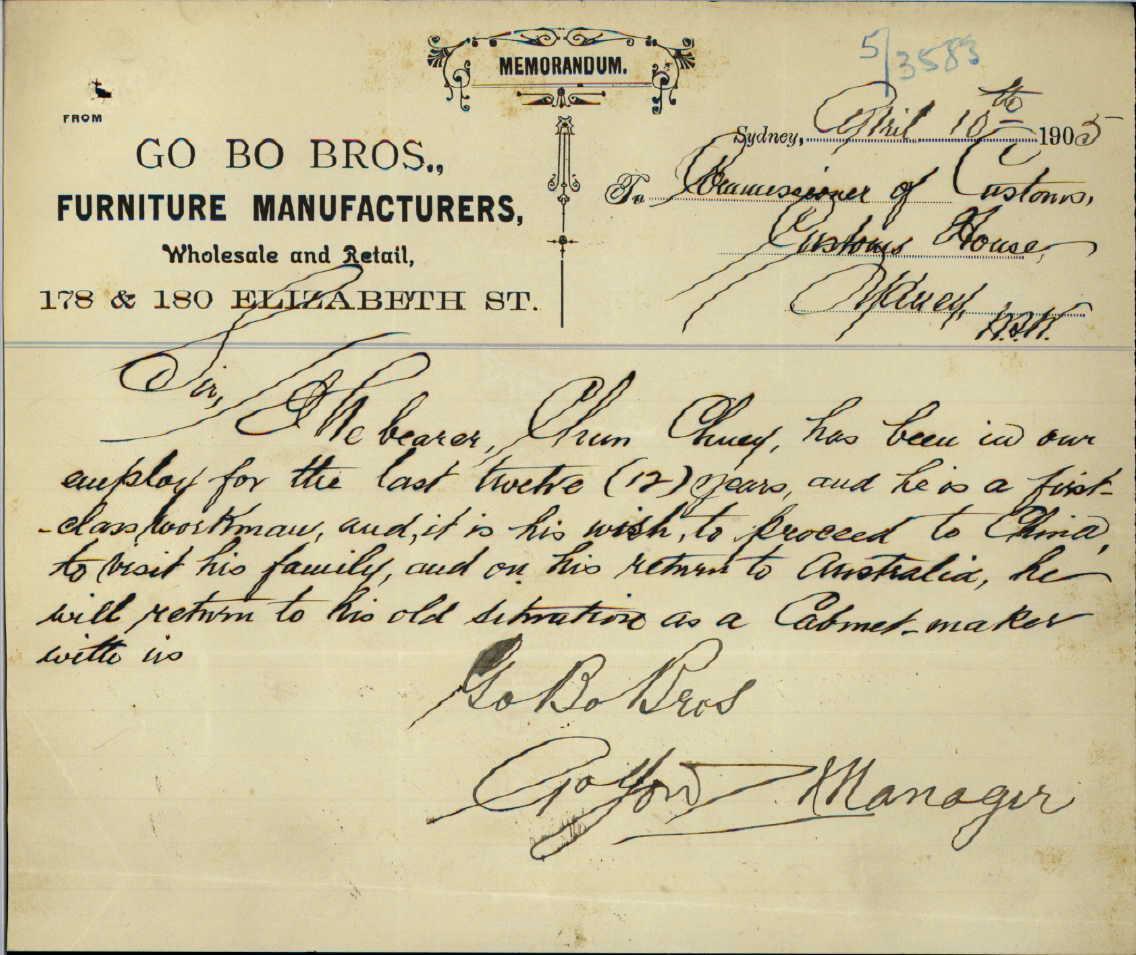 MEMORANDUM.
5/3583
FROM
GO BO BROS.,
FURNITURE MANUFACTURERS,
Wholesale and Retail,
178 & 180 ELIZABETH ST.
Sydney, April 10th 1905
To Commissioner of Customs,
Customs House,
Sydney,
N.S.W.
Sir,
The bearer, Chun Chuey, has been in our
employ for the last twelve (12) years, and he is a first-
-class workman, and, it is his wish, to proceed to China,
to visit his family, and on his return to Australia, he
will return to his old situation as a Cabinet-maker
with us
Go Bo Bros
Go You Manager